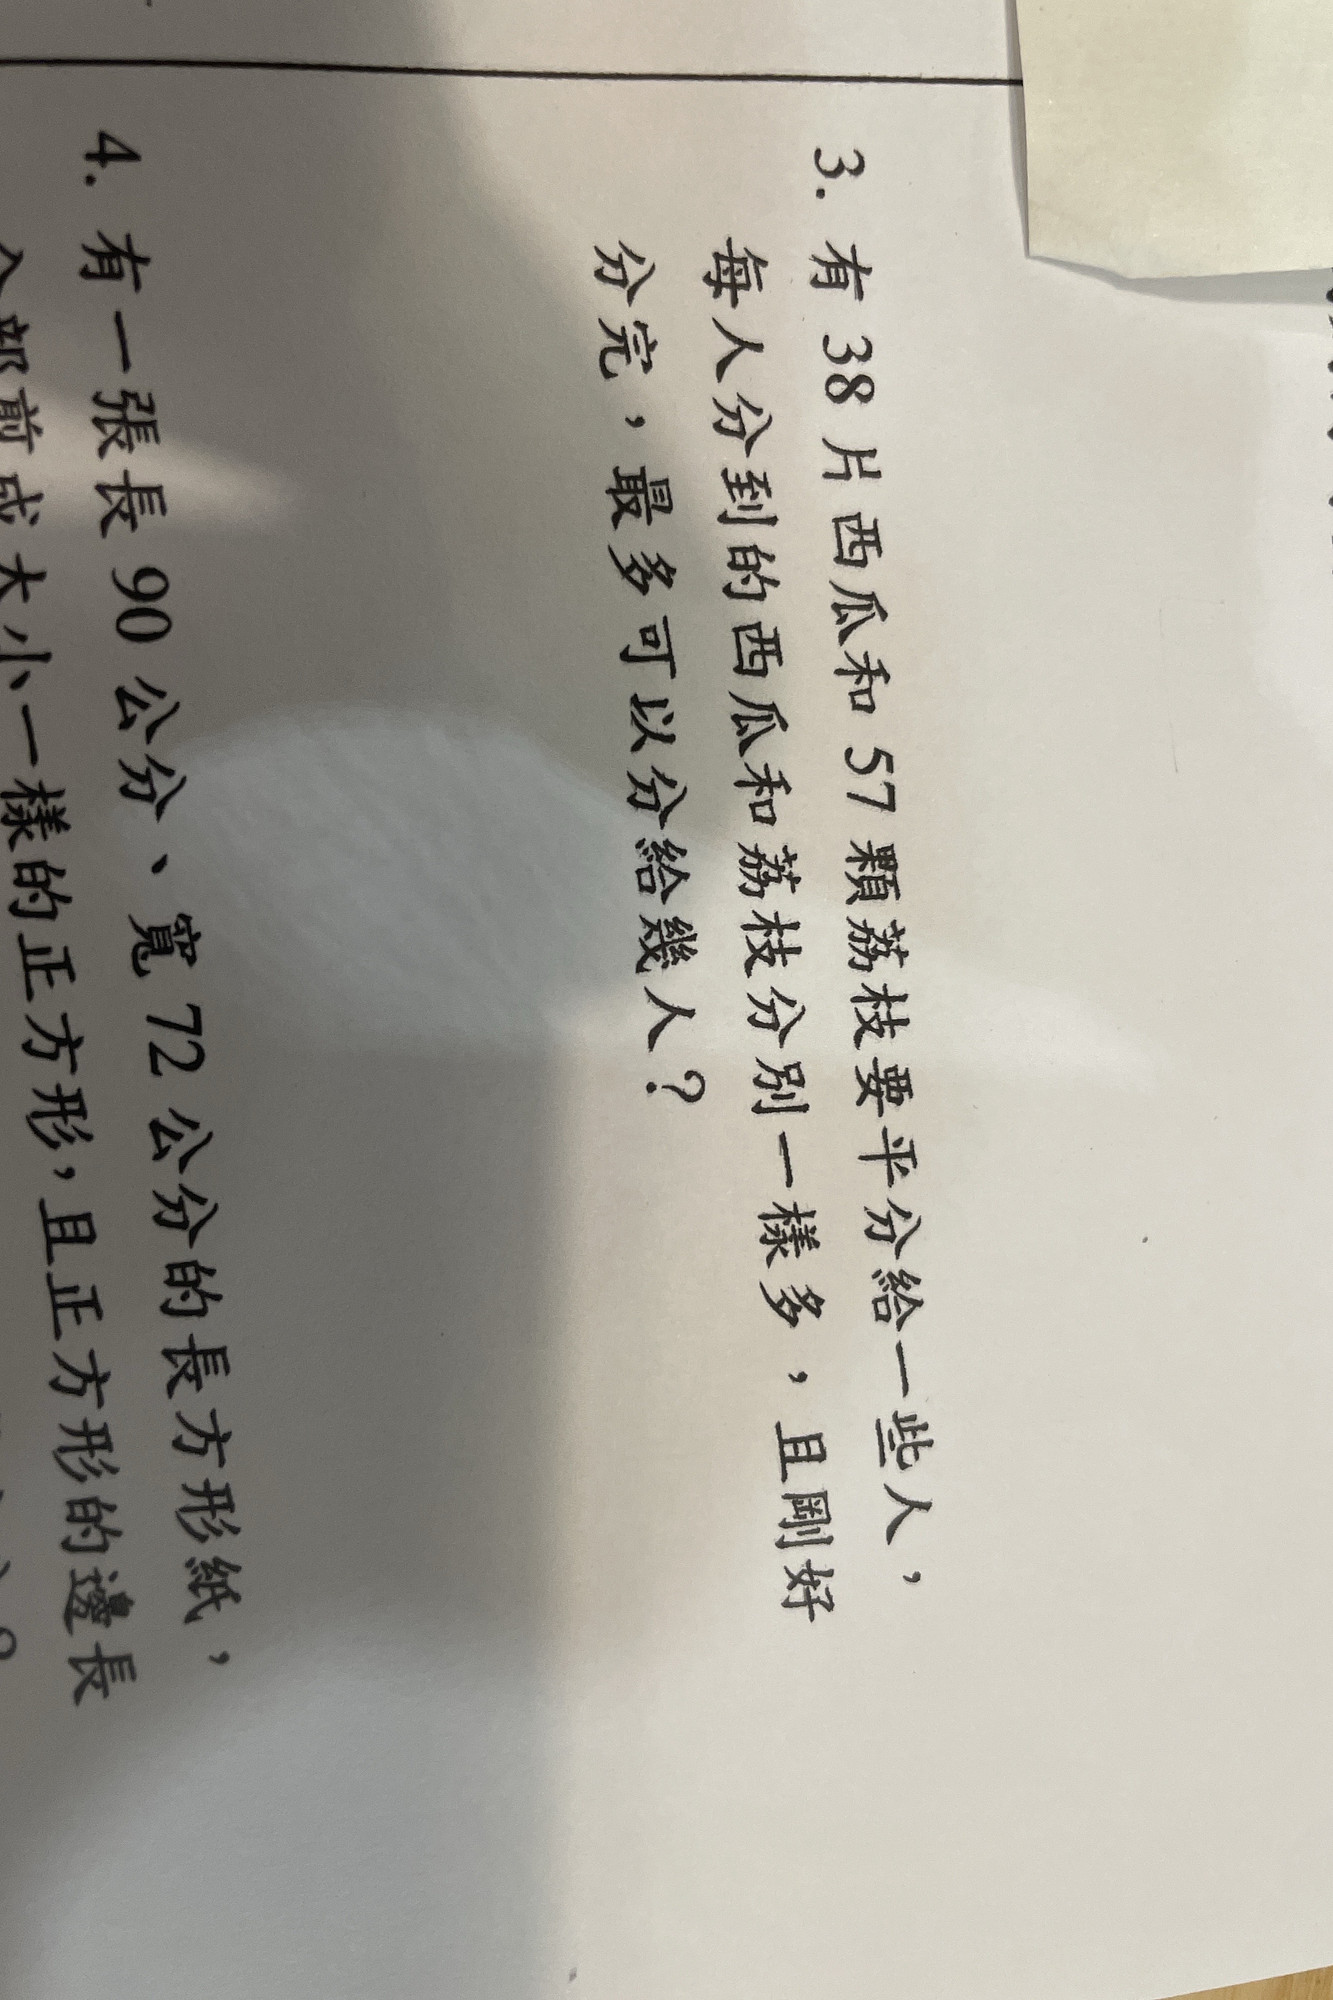 3. 有 38 片西瓜和 57 顆荔枝要平分給一些人，
每人分到的西瓜和荔枝分別一樣多，且剛好
分完，最多可以分給幾人？
4. 有一張長 90 公分、寬 72 公分的長方形紙，
全部剪成大小一樣的正方形，且正方形的邊長